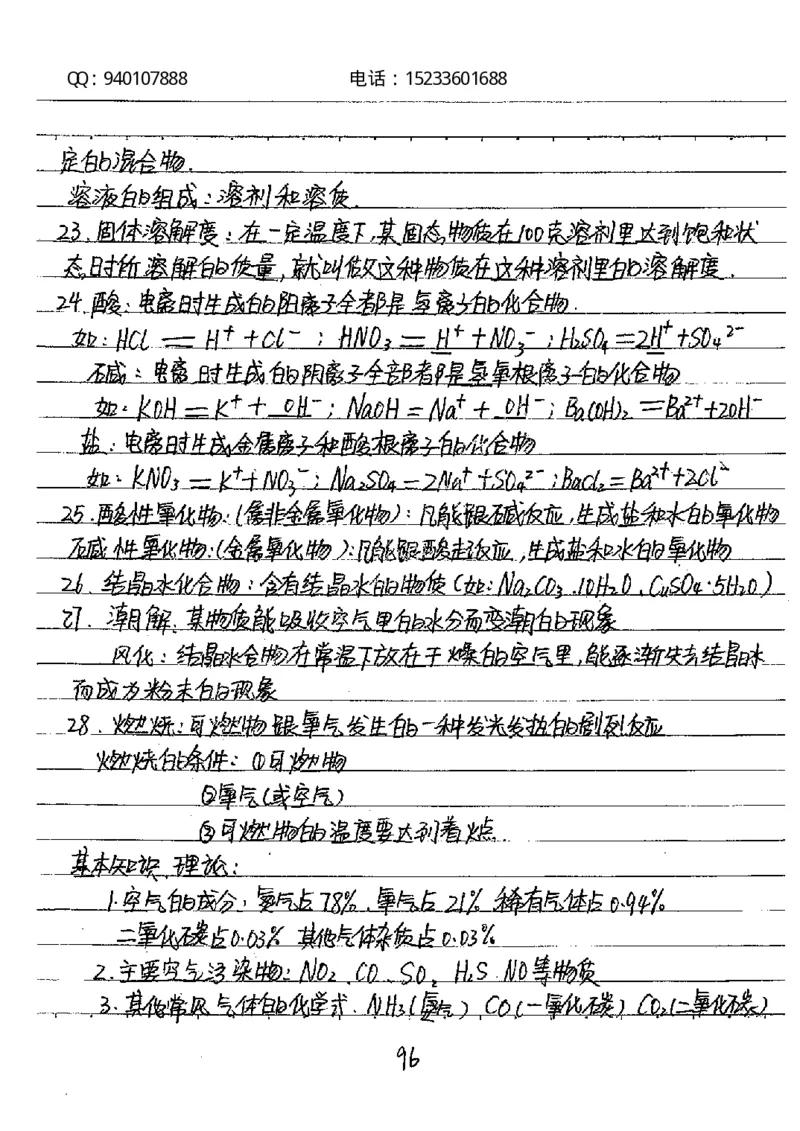 QQ：940107888 电话：15233601688
定的混合物.
溶液的组成：溶剂和溶质.
23.固体溶解度：在一定温度下,某固态物质在100克溶剂里达到饱和状
态时所溶解的质量,就叫做这种物质在这种溶剂里的溶解度.
24.酸：电离时生成的阳离子全都是氢离子的化合物.
如：HCl＝H⁺+Cl⁻；HNO₃＝H⁺+NO₃⁻；H₂SO₄＝2H⁺+SO₄²⁻
碱：电离时生成的阴离子全部都是氢氧根离子的化合物
如：KOH＝K⁺+OH⁻；NaOH＝Na⁺+OH⁻；Ba(OH)₂＝Ba²⁺+2OH⁻
盐：电离时生成金属离子和酸根离子的化合物
如：KNO₃＝K⁺+NO₃⁻；Na₂SO₄＝2Na⁺+SO₄²⁻；BaCl₂＝Ba²⁺+2Cl⁻
25.酸性氧化物：(属非金属氧化物)：凡能跟碱反应,生成盐和水的氧化物
碱性氧化物：(金属氧化物)：凡能跟酸起反应,生成盐和水的氧化物
26.结晶水化合物：含有结晶水的物质(如：Na₂CO₃.10H₂O、CuSO₄·5H₂O)
27.潮解：某物质能吸收空气里的水分而变潮的现象
风化：结晶水合物在常温下放在干燥的空气里,能逐渐失去结晶水
而成为粉末的现象
28.燃烧：可燃物跟氧气发生的一种发光发热的剧烈反应
燃烧的条件：①可燃物
②氧气(或空气)
③可燃物的温度要达到着火点.
基本知识、理论：
1.空气的成分：氮气占78%、氧气占21%、稀有气体占0.94%
二氧化碳占0.03%、其他气体杂质占0.03%
2.主要空气污染物：NO₂、CO、SO₂、H₂S、NO等物质
3.其他常见气体的化学式：NH₃(氨气)、CO(一氧化碳)、CO₂(二氧化碳)
96